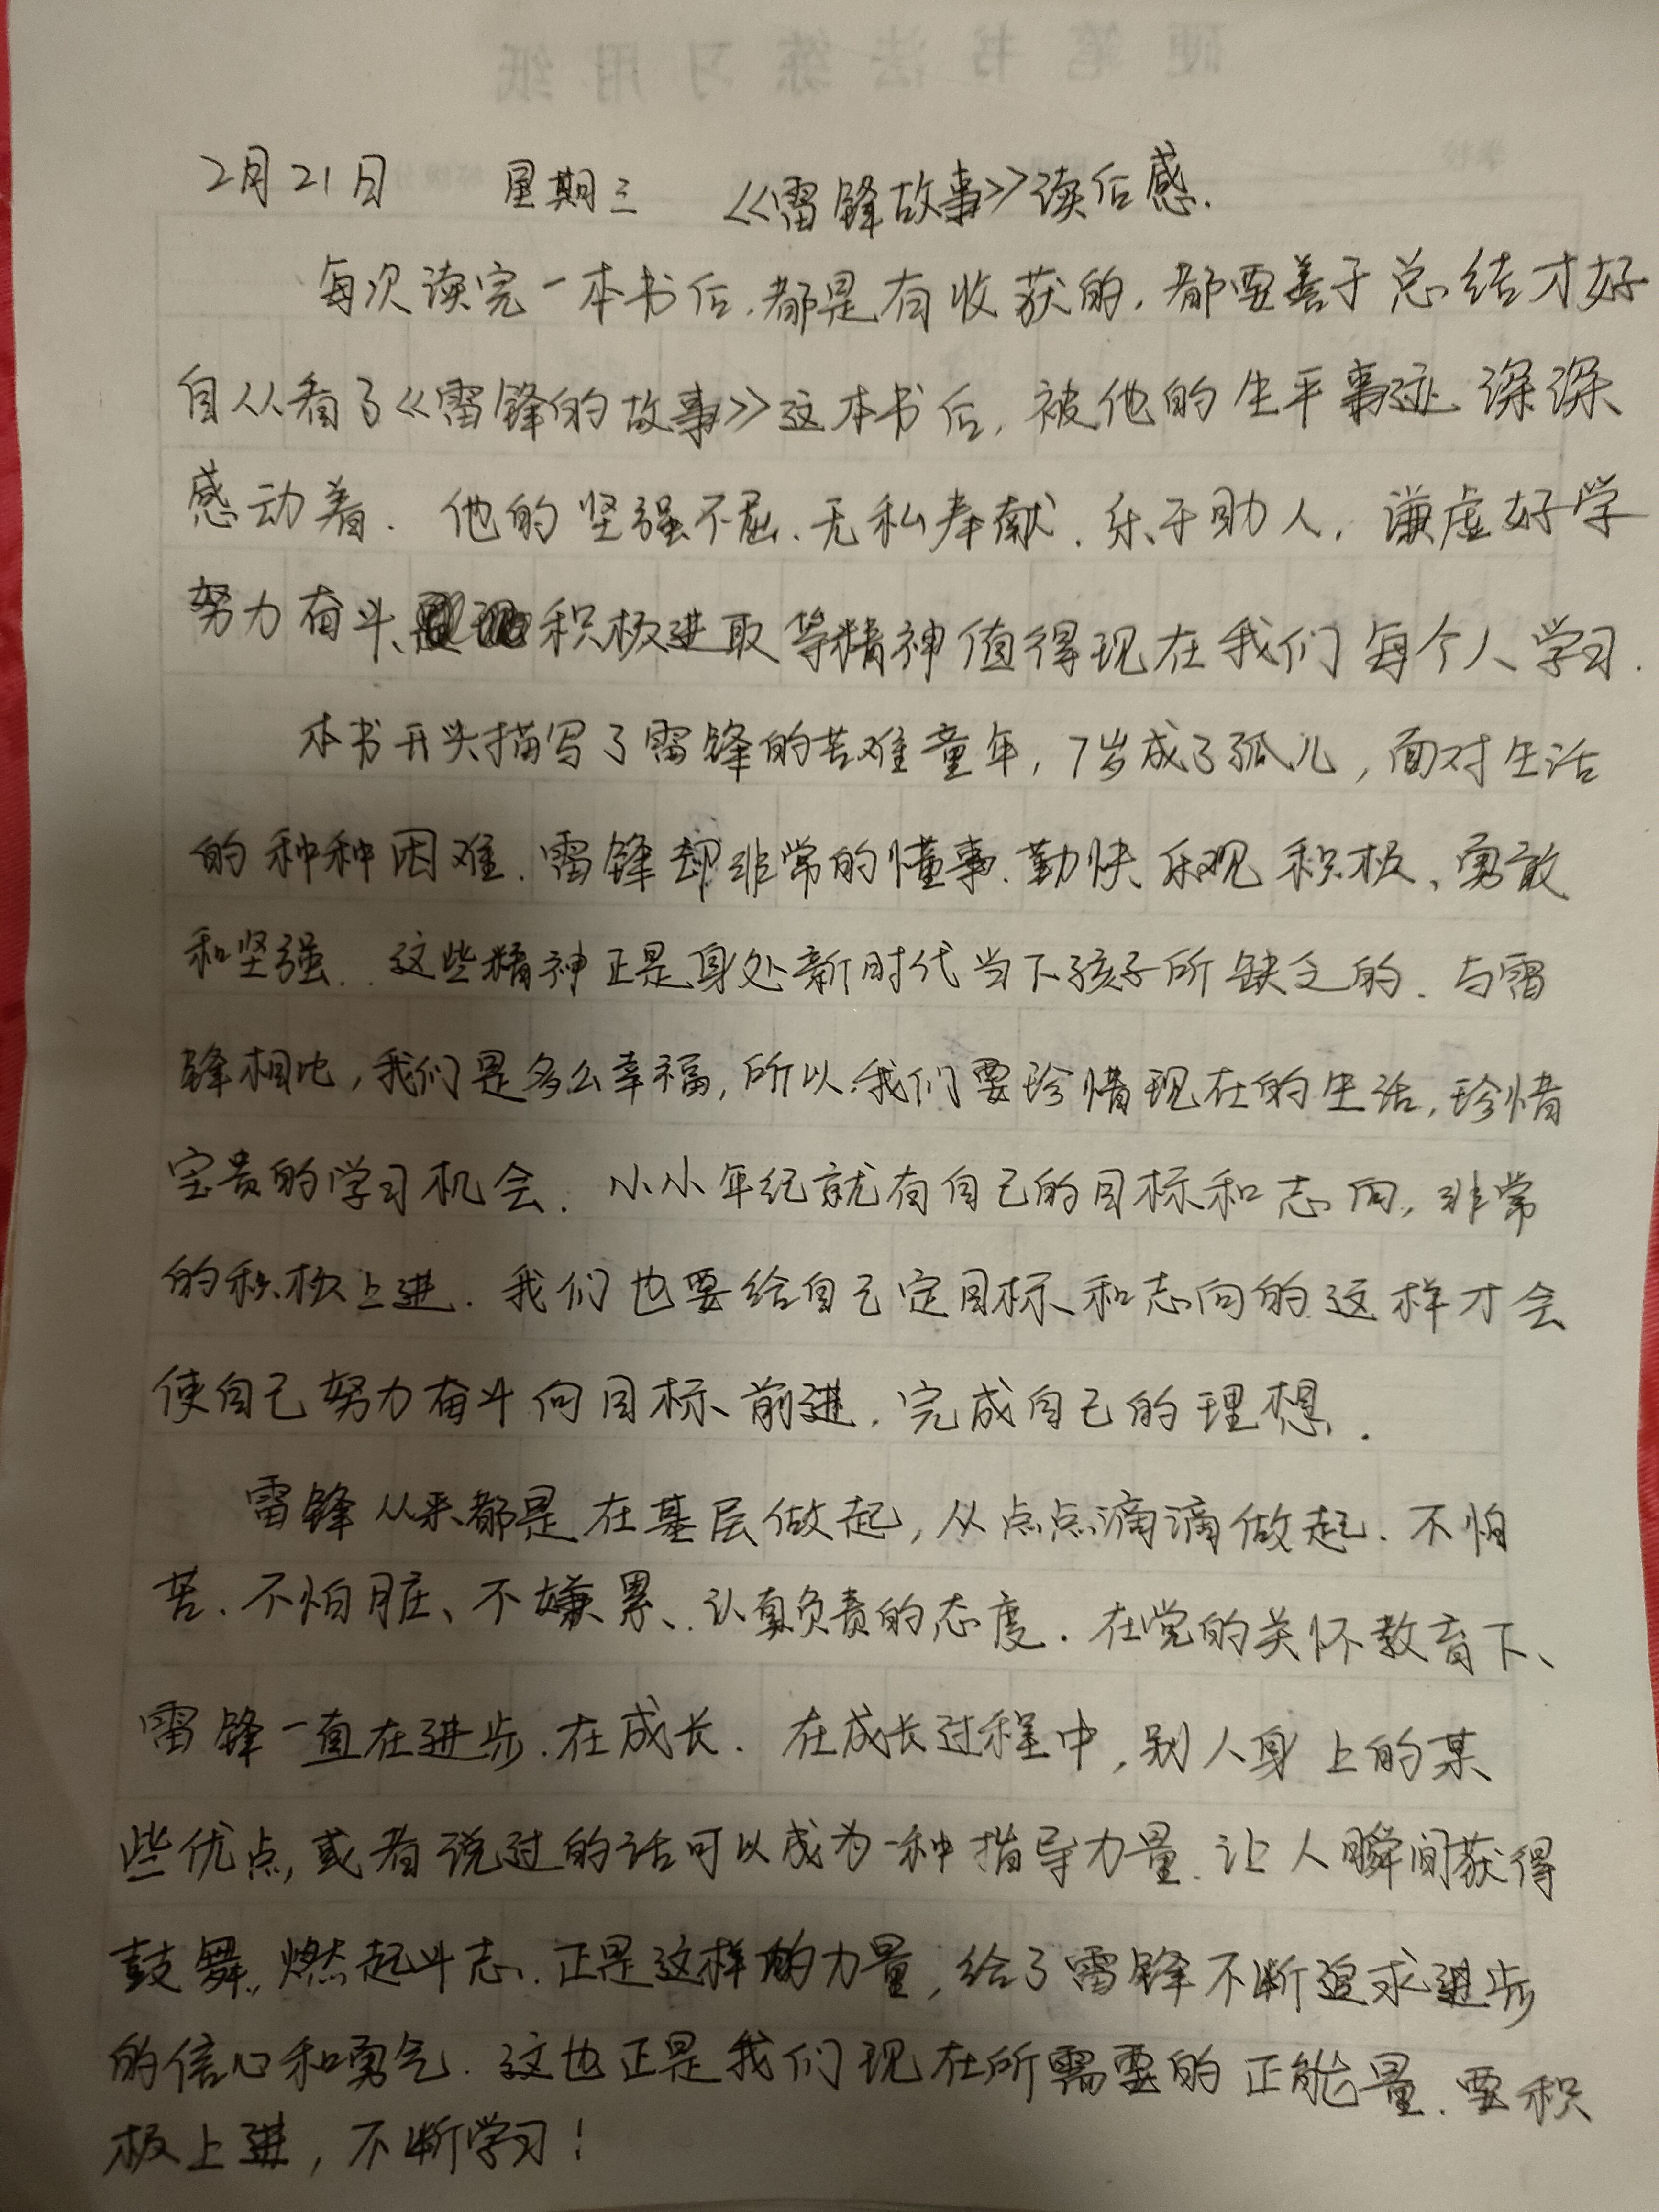 硬笔书法练习用纸
2月21日 星期三 《雷锋故事》读后感.
每次读完一本书后,都是有收获的,都要善于总结才好
自从看了《雷锋的故事》这本书后,被他的生平事迹深深
感动着.他的坚强不屈、无私奉献、乐于助人,谦虚好学
努力奋斗、积极进取等精神值得现在我们每个人学习.
本书开头描写了雷锋的苦难童年,7岁成了孤儿,面对生活
的种种困难.雷锋却非常的懂事、勤快、乐观积极、勇敢
和坚强..这些精神正是身处新时代当下孩子所缺乏的.与雷
锋相比,我们是多么幸福,所以我们要珍惜现在的生活,珍惜
宝贵的学习机会.小小年纪就有自己的目标和志向,非常
的积极上进.我们也要给自己定目标和志向的.这样才会
使自己努力奋斗向目标前进,完成自己的理想.
雷锋从来都是在基层做起,从点点滴滴做起.不怕
苦、不怕脏、不嫌累、认真负责的态度.在党的关怀教育下、
雷锋一直在进步.在成长.在成长过程中,别人身上的某
些优点,或者说过的话可以成为一种指导力量.让人瞬间获得
鼓舞,燃起斗志.正是这样的力量,给了雷锋不断追求进步
的信心和勇气.这也正是我们现在所需要的正能量.要积
极上进,不断学习!